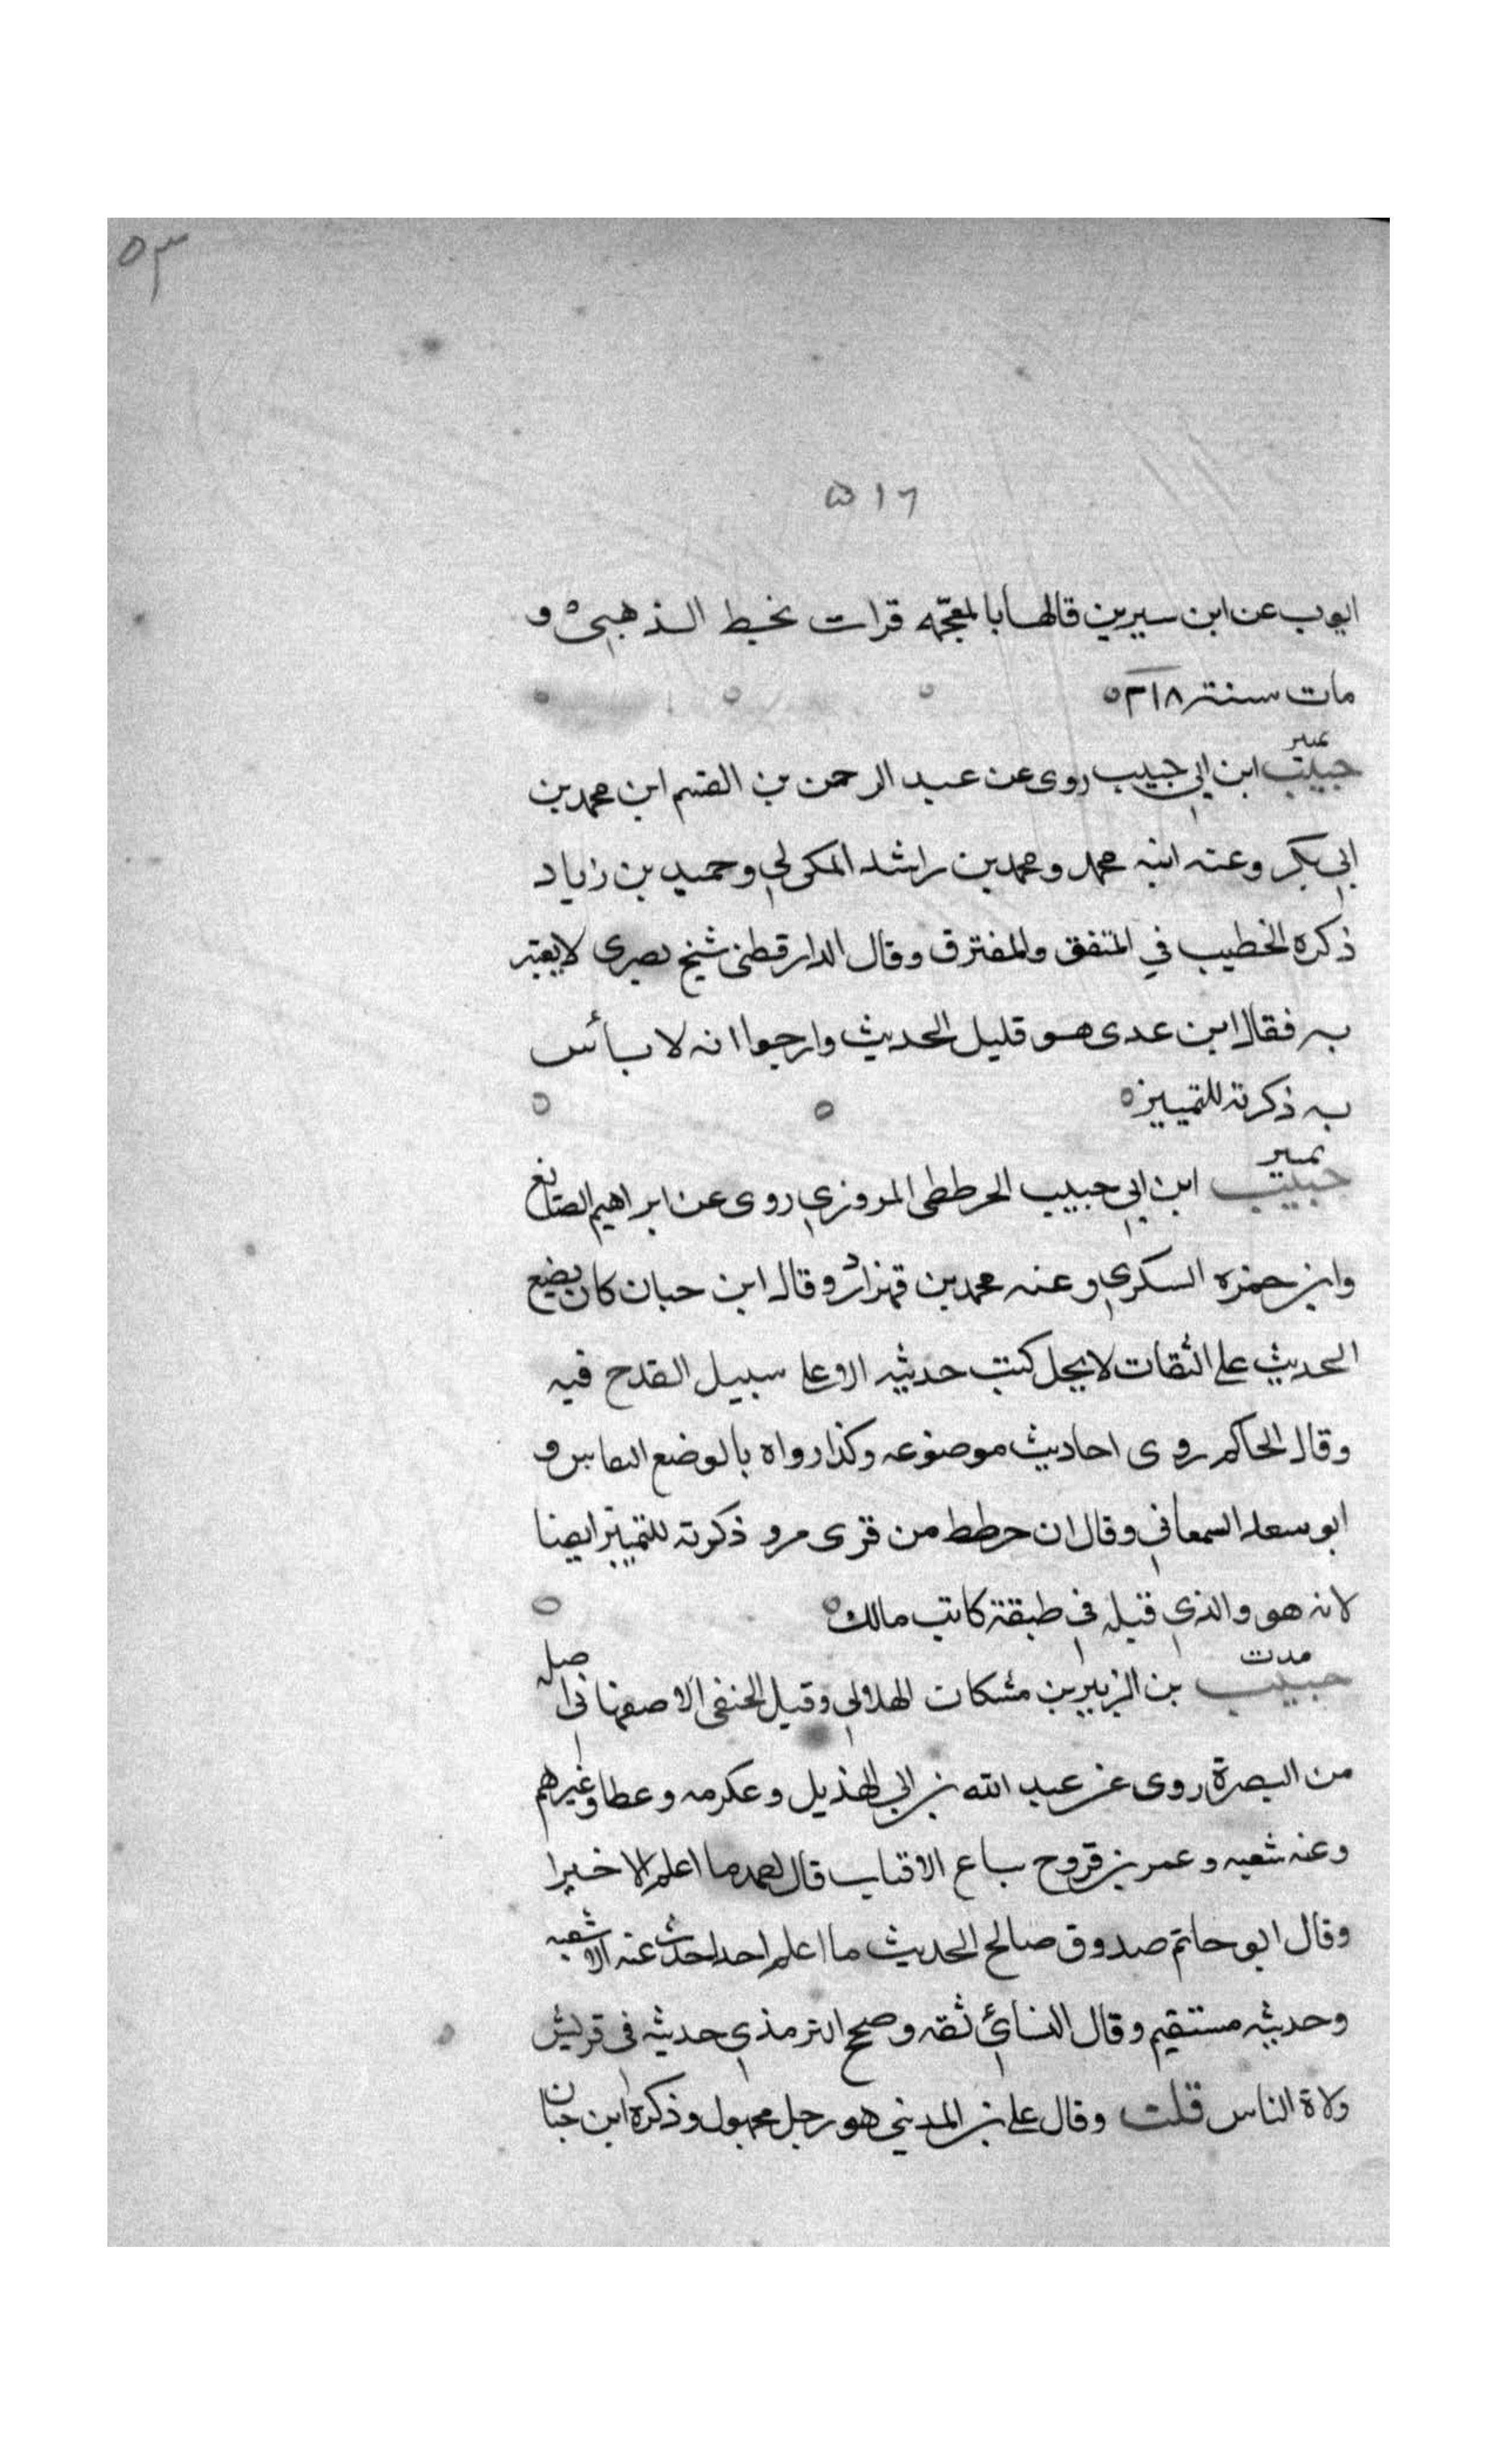 ٥٣
٥١٦
ايوب عن ابن سيرين قالها بالمعجمه قرات بخط الذهبي و
مات سنة ٢١٨
تميز
حبيب ابن ابي حبيب روى عن عبد الرحمن بن القسم ابن محمد بن
ابي بكر وعنه ابنه محمد ومحمد بن راشد المكحولي وحميد بن زياد
ذكره الخطيب في المتفق والمفترق وقال الدارقطني شيخ بصري لا يعتبر
به فقال ابن عدى هو قليل الحديث وارجوا انه لا بأس
به ذكرته للتمييز
تميز
حبيب ابن ابي حبيب الخرططي المروزي روى عن ابراهيم الصائغ
وابن حمزه السكري وعنه محمد بن قهزاد وقال ابن حبان كان يضع
الحديث على الثقات لا يحل كتب حديثه الا على سبيل القدح فيه
وقال الحاكم روى احاديث موضوعه وكذا رواه بالوضع النقاش و
ابو سعد السمعاني وقال ان خرطط من قرى مرو ذكرته للتمييز ايضا
لانه هو والذي قبله في طبقة كاتب مالك
مدت
حبيب بن الزبير بن مشكان الهلالي وقيل الحنفي الاصفهاني اصله
من البصرة روى عن عبد الله بن ابي الهذيل وعكرمه وعطا وغيرهم
وعنه شعبه وعمر بن فروخ بياع الاقتاب قال احمد ما اعلم الا خيرا
وقال ابو حاتم صدوق صالح الحديث ما اعلم احدا حدث عنه الا شعبه
وحديثه مستقيم وقال النسائي ثقه وصحح الترمذي حديثه في قريش
ولاة الناس قلت وقال علي بن المديني هو رجل مجهول وذكره ابن حبان